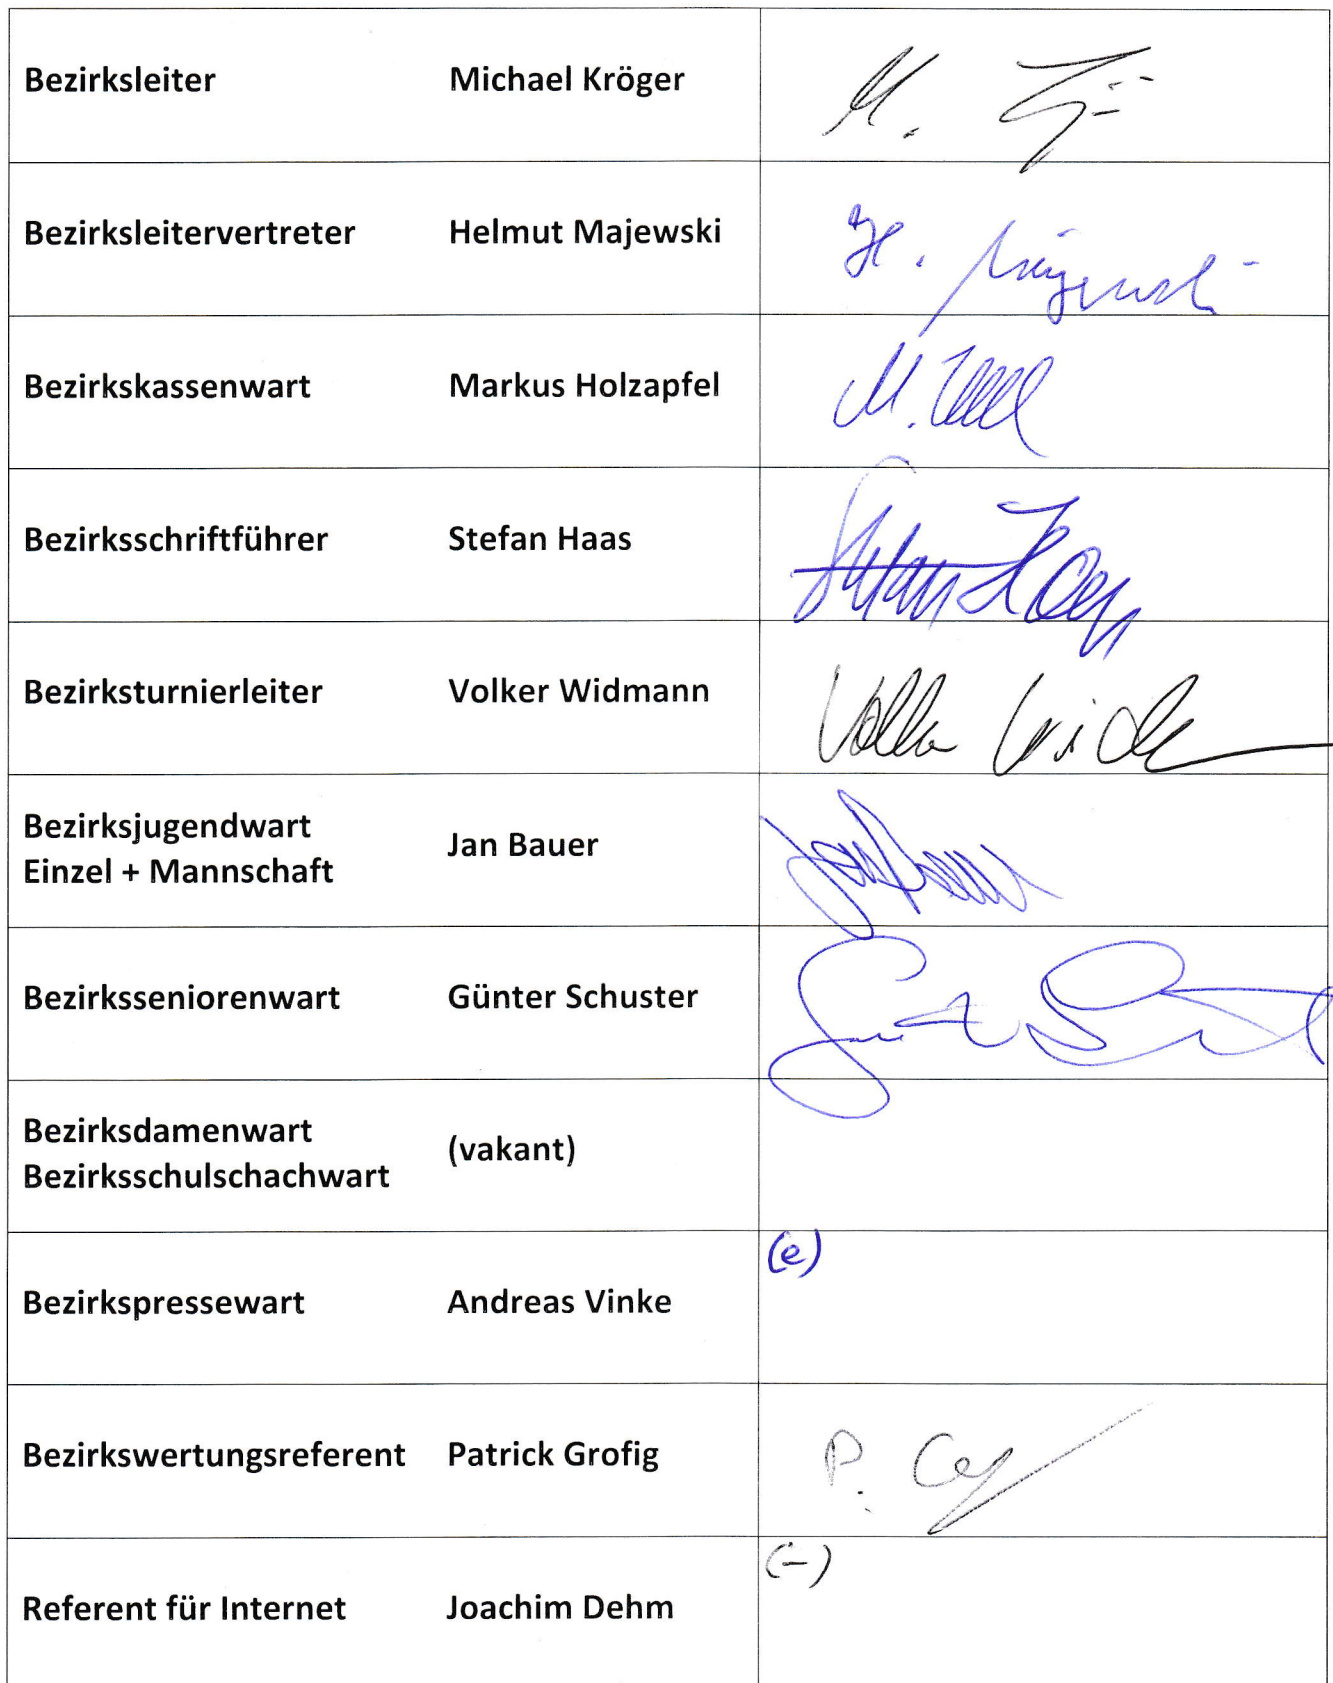 Bezirksleiter Michael Kröger
Bezirksleitervertreter Helmut Majewski
H. Majewski
Bezirkskassenwart Markus Holzapfel
Bezirksschriftführer Stefan Haas
Stefan Haas
Bezirksturnierleiter Volker Widmann
Bezirksjugendwart
Einzel + Mannschaft
Jan Bauer
Jan Bauer
Bezirksseniorenwart Günter Schuster
Bezirksdamenwart
Bezirksschulschachwart
(vakant)
(e)
Bezirkspressewart Andreas Vinke
Bezirkswertungsreferent Patrick Grofig
(-)
Referent für Internet Joachim Dehm